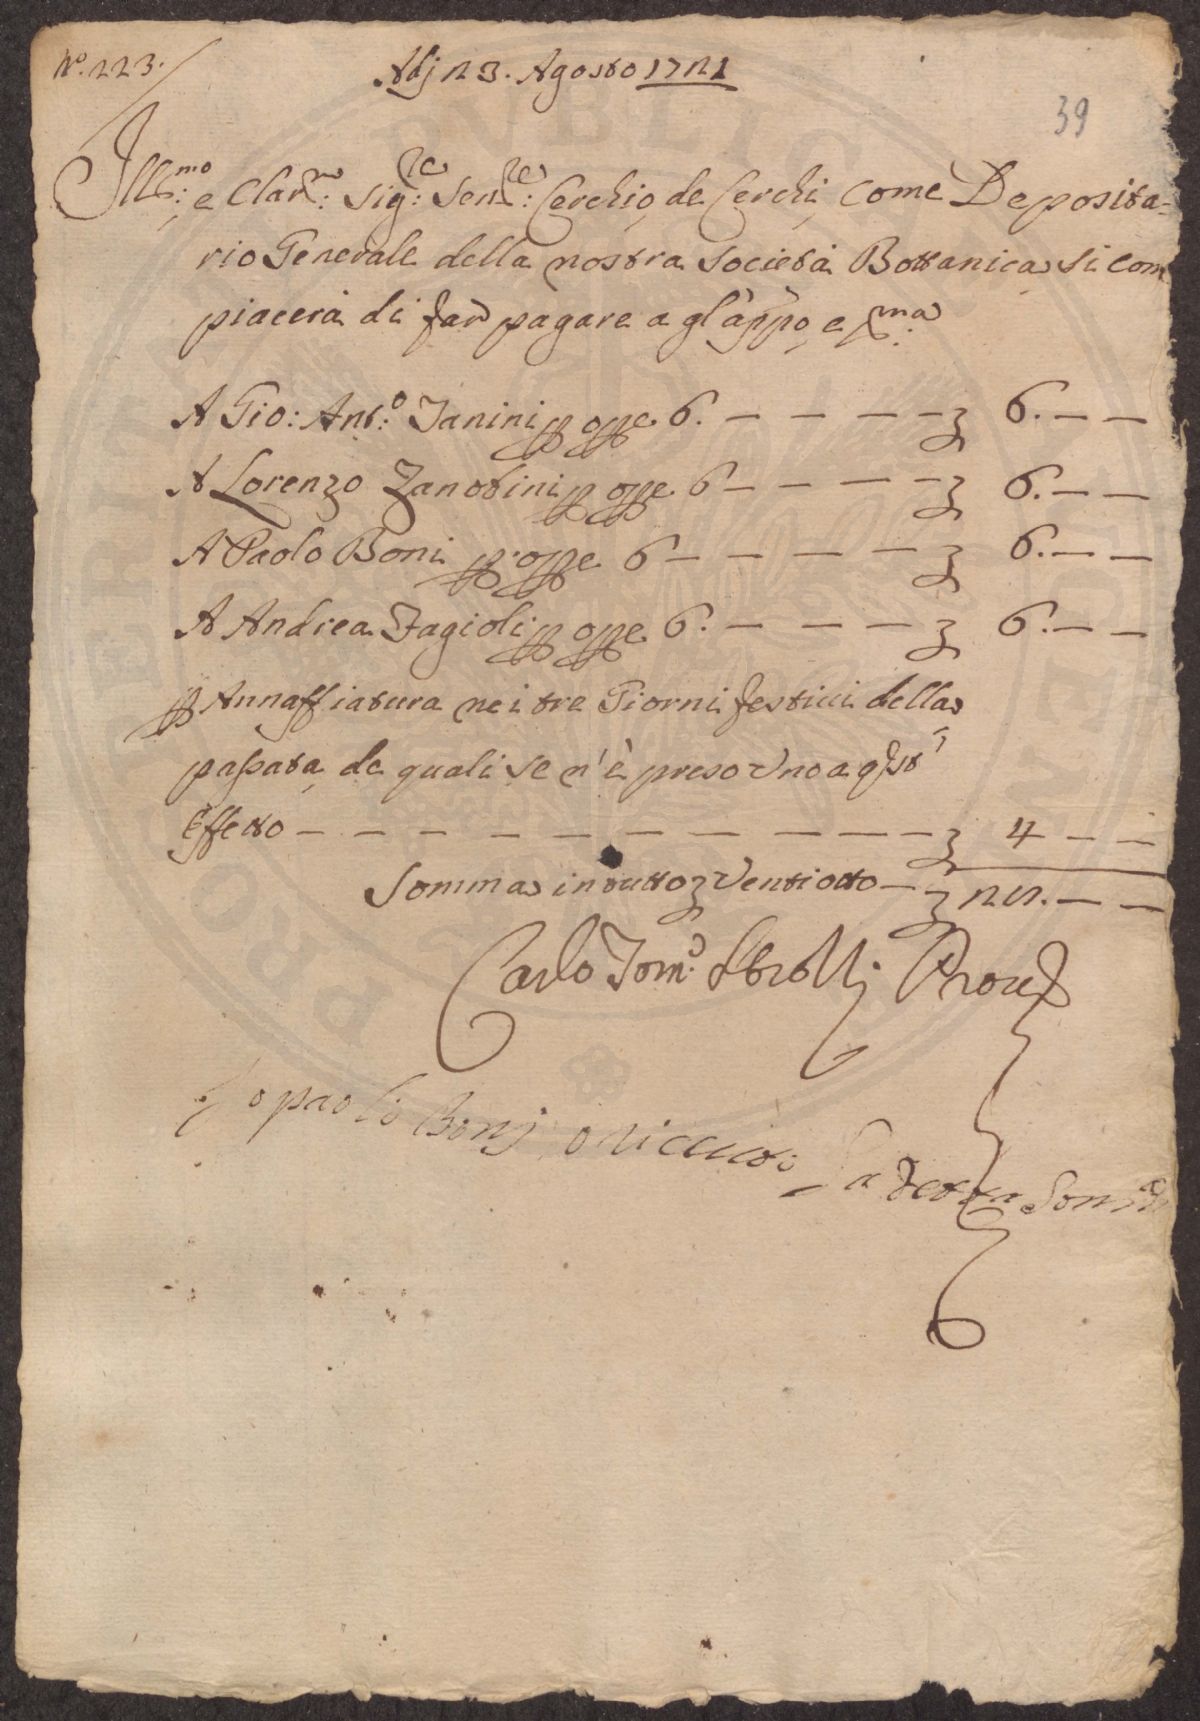 N.o 223.
Adj 23. Agosto 1721
39
Ill:mo e Clar:mo Sig:re Sen:re Cerchio de Cerchi, come Deposita-
rio Generale della nostra Società Bottanica, si com
piacerà di far pagare a gl'appo, e pma
A Gio: Ant:o Janini p opp.e 6. — — — — 6. — —
A Lorenzo Zanobini p opp.e 6 — — — — 6. — —
A Paolo Boni p. opp.e 6 — — — — 6. — —
A Andrea Fagioli p opp.e 6. — — — — 6. — —
p Annaffiatura ne i tre Giorni festivi della
passata, de quali se n'è preso uno a qst'
Effetto — — — — — — — — — — 4 — —
Somma in tutto Ventiotto — 28. — —
Carlo Tom:o Prov:
Io paolo Bonj o riceuto la detta Soma